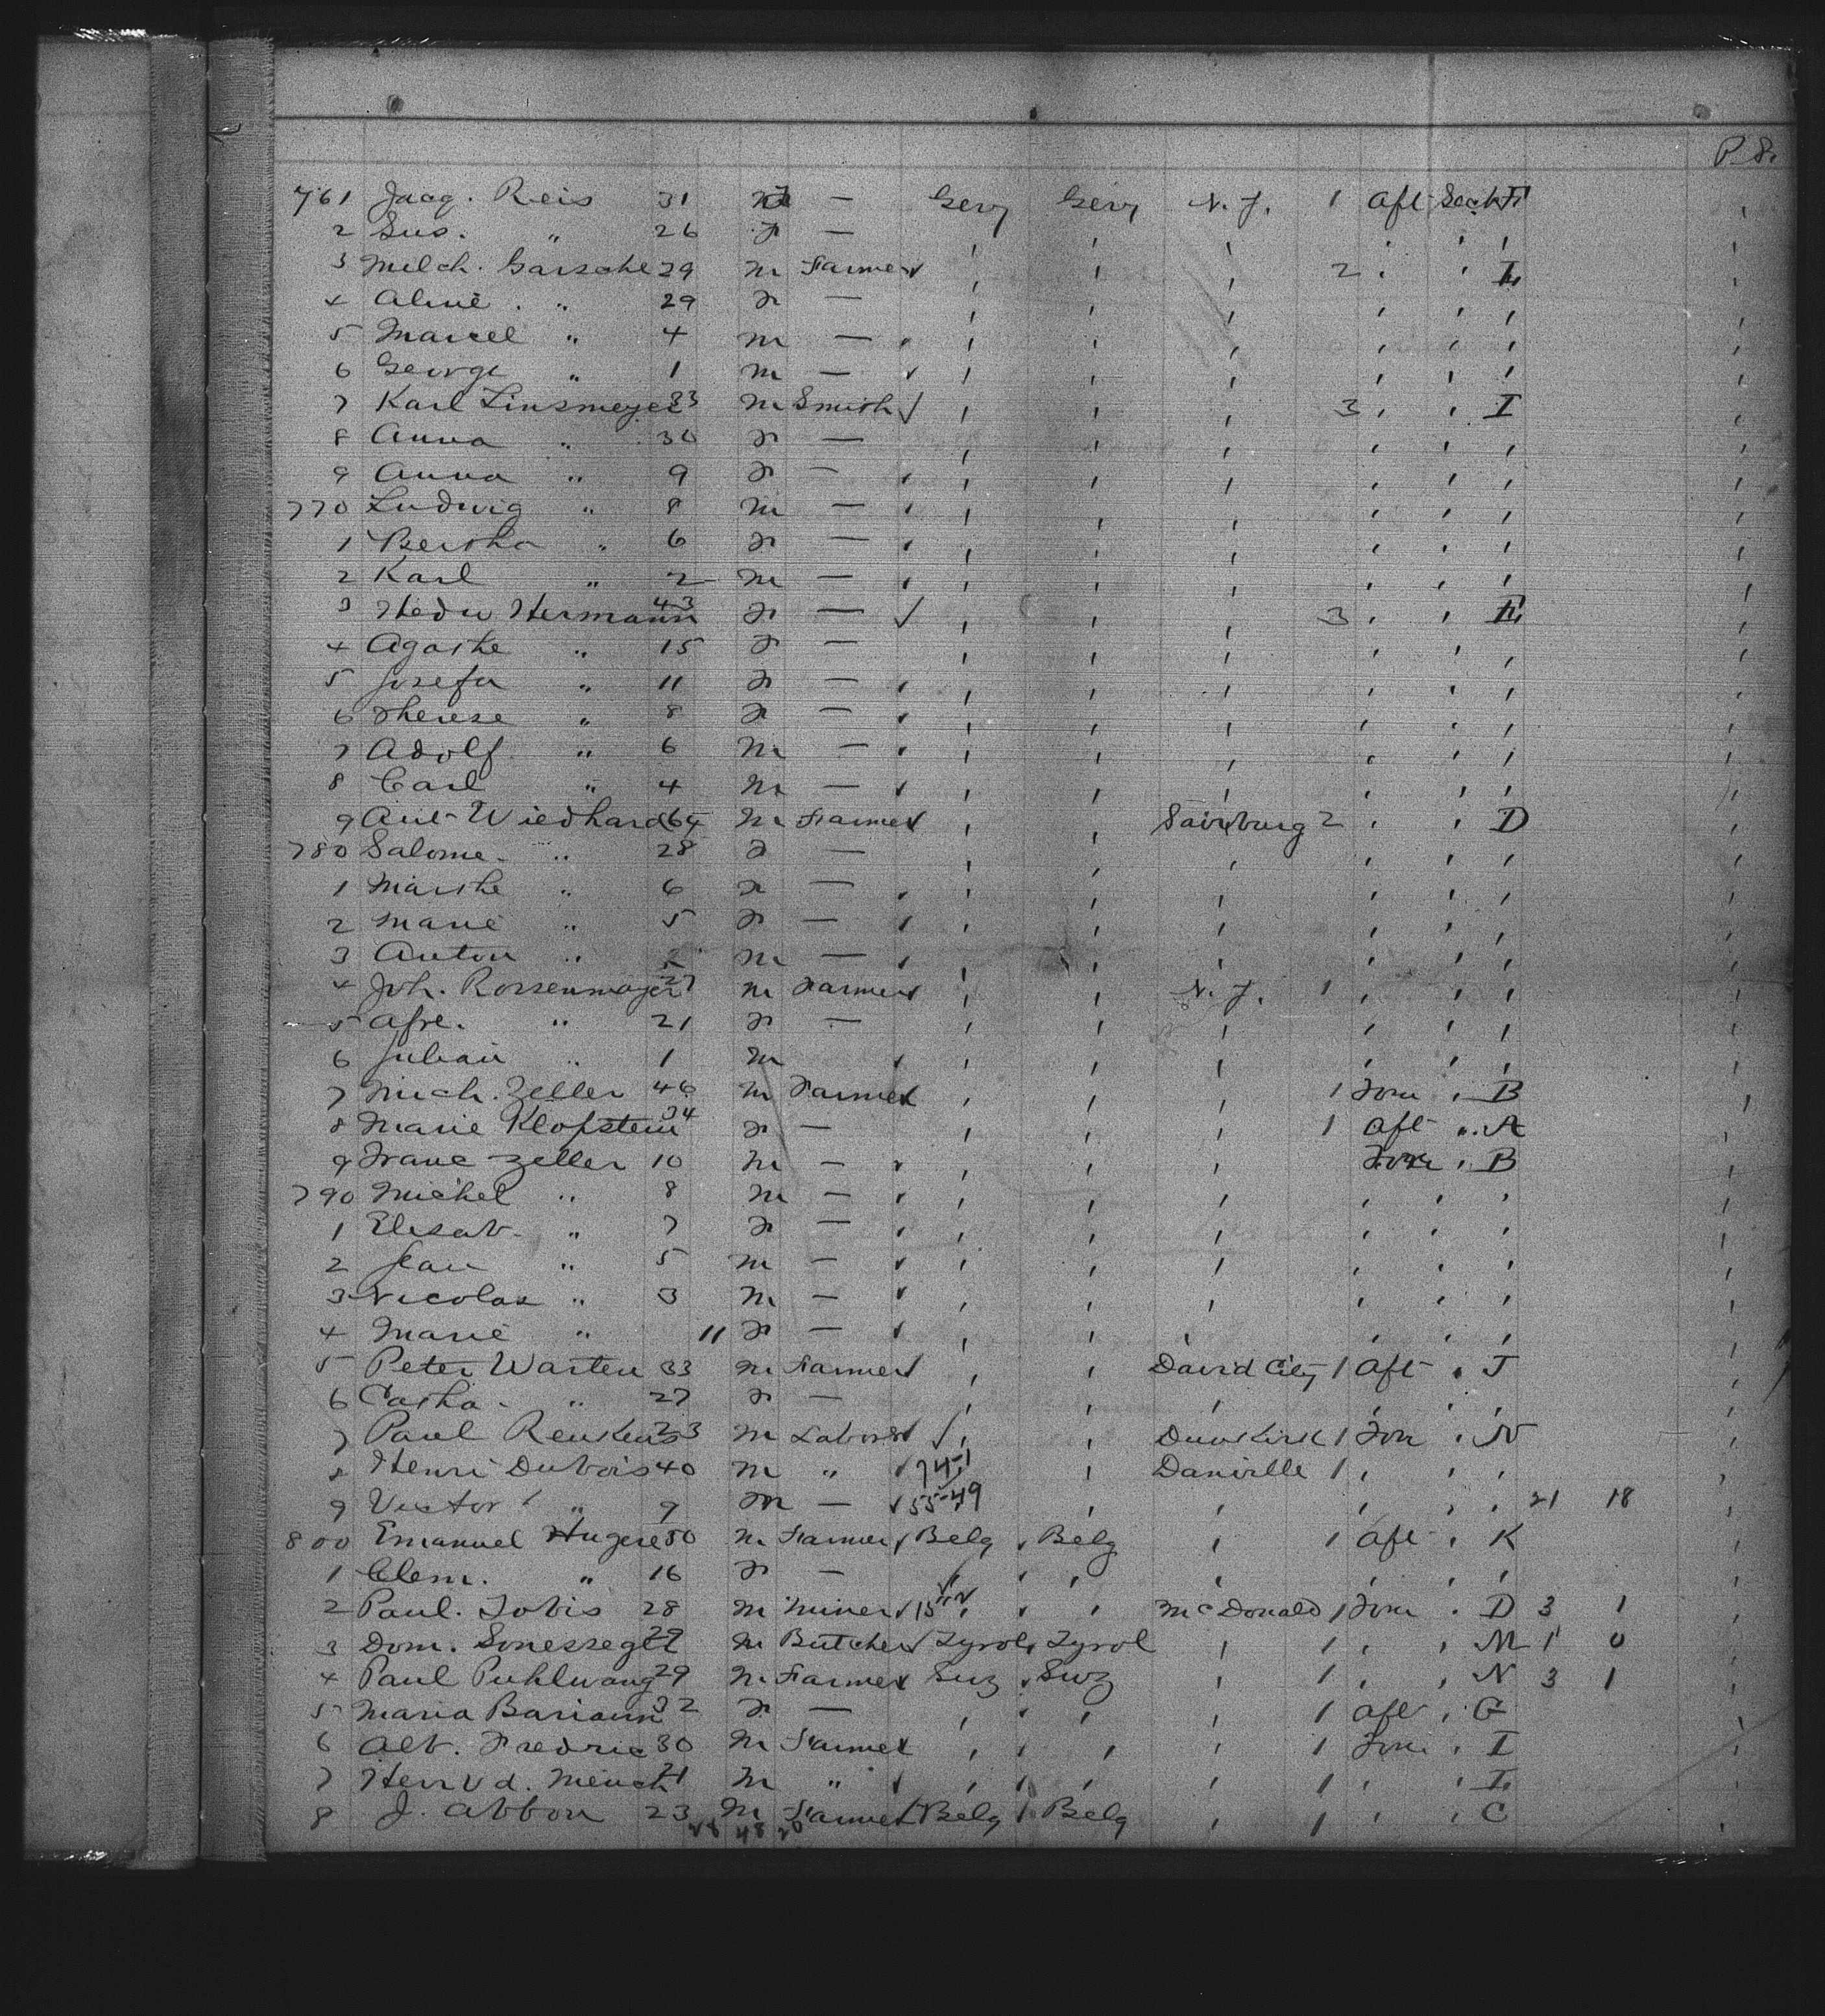 P. S.
761 Jacq. Reis 31 — Gery Gery N. J. 1 Aft Sect
2 Sus. " 26 F —
3 Melch. Garsche 29 M Farmer 2
4 Aline " 29 F —
5 Marcel " 4 M —
6 George " 1 M —
7 Karl Linsmeyer 33 M Smith 3 I
8 Anna " 30 F —
9 Anna " 9 F —
770 Ludwig " 8 M —
1 Bertha " 6 F —
2 Karl " 2 M —
3 Hedw Hermann 43 F — 3
4 Agathe " 15 F —
5 Josefa " 11 F —
6 Therese " 8 F —
7 Adolf " 6 M —
8 Carl " 4 M —
9 Ant Wiedhard 64 M Farmer 2 D
780 Salome " 28 F —
1 Marthe " 6 F —
2 Marie " 5 F —
3 Anton " 2 M —
4 Joh. Rossenmayer 27 M Farmer N. J. 1
5 Afre. " 21 F —
6 Julian " 1 M
7 Mich. Zeller 46 M Farmer 1 Forw B
8 Marie Klopstein 34 F — 1 Aft A
9 Franc Zeller 10 M — Forw B
790 Michel " 8 M —
1 Elisab. " 7 F —
2 Jean " 5 M —
3 Nicolas " 3 M —
4 Marie " 11 F —
5 Peter Warten 33 M Farmer David City 1 Aft J
6 Catha. " 27 F —
7 Paul Renkens 23 M Laborer Dunkirk 1 Forw N
8 Henri Dubois 40 M " 74-1 Danville 1
9 Victor " 9 M — 55-49 21 18
800 Emanuel Hugere 50 M Farmer Belg Belg 1 Aft K
1 Clem. " 16 F —
2 Paul. Tobis 28 M Miner 15 McDonald 1 Forw D 3 1
3 Dom. 29 M Butcher Tyrol Tyrol 1 M 1 0
4 Paul Puhlwang 29 M Farmer Swz Swz 1 N 3 1
5 Maria Bariann 32 F — 1 Aft G
6 Alb. Fredric 30 M Farmer 1 Forw I
7 Henr v d. Mensch 21 M " 1
8 J. Abbon 23 M Farmer Belg Belg 1 C
28 48 20